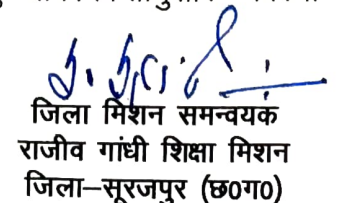 जिला मिशन समन्वयक
राजीव गांधी शिक्षा मिशन
जिला–सूरजपुर (छ0ग0)